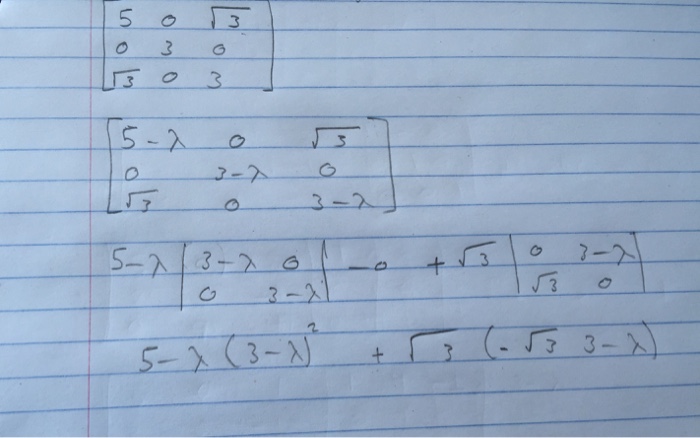 5 0 √3
0 3 0
√3 0 3
5-λ 0 √3
0 3-λ 0
√3 0 3-λ
5-λ | 3-λ 0 | -0 + √3 | 0 3-λ |
| 0 3-λ | | √3 0 |
5-λ (3-λ)² + √3 (-√3 3-λ)